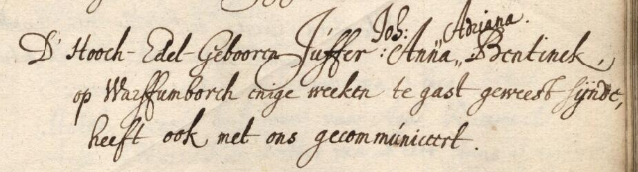 Joh: Adriana.
D' Hooch-Edel-Geboren Juffer: Anna „ Bentinck,
op Warffumborch enige weeken te gast geweest sijnde,
heeft ook met ons gecommúniceert.